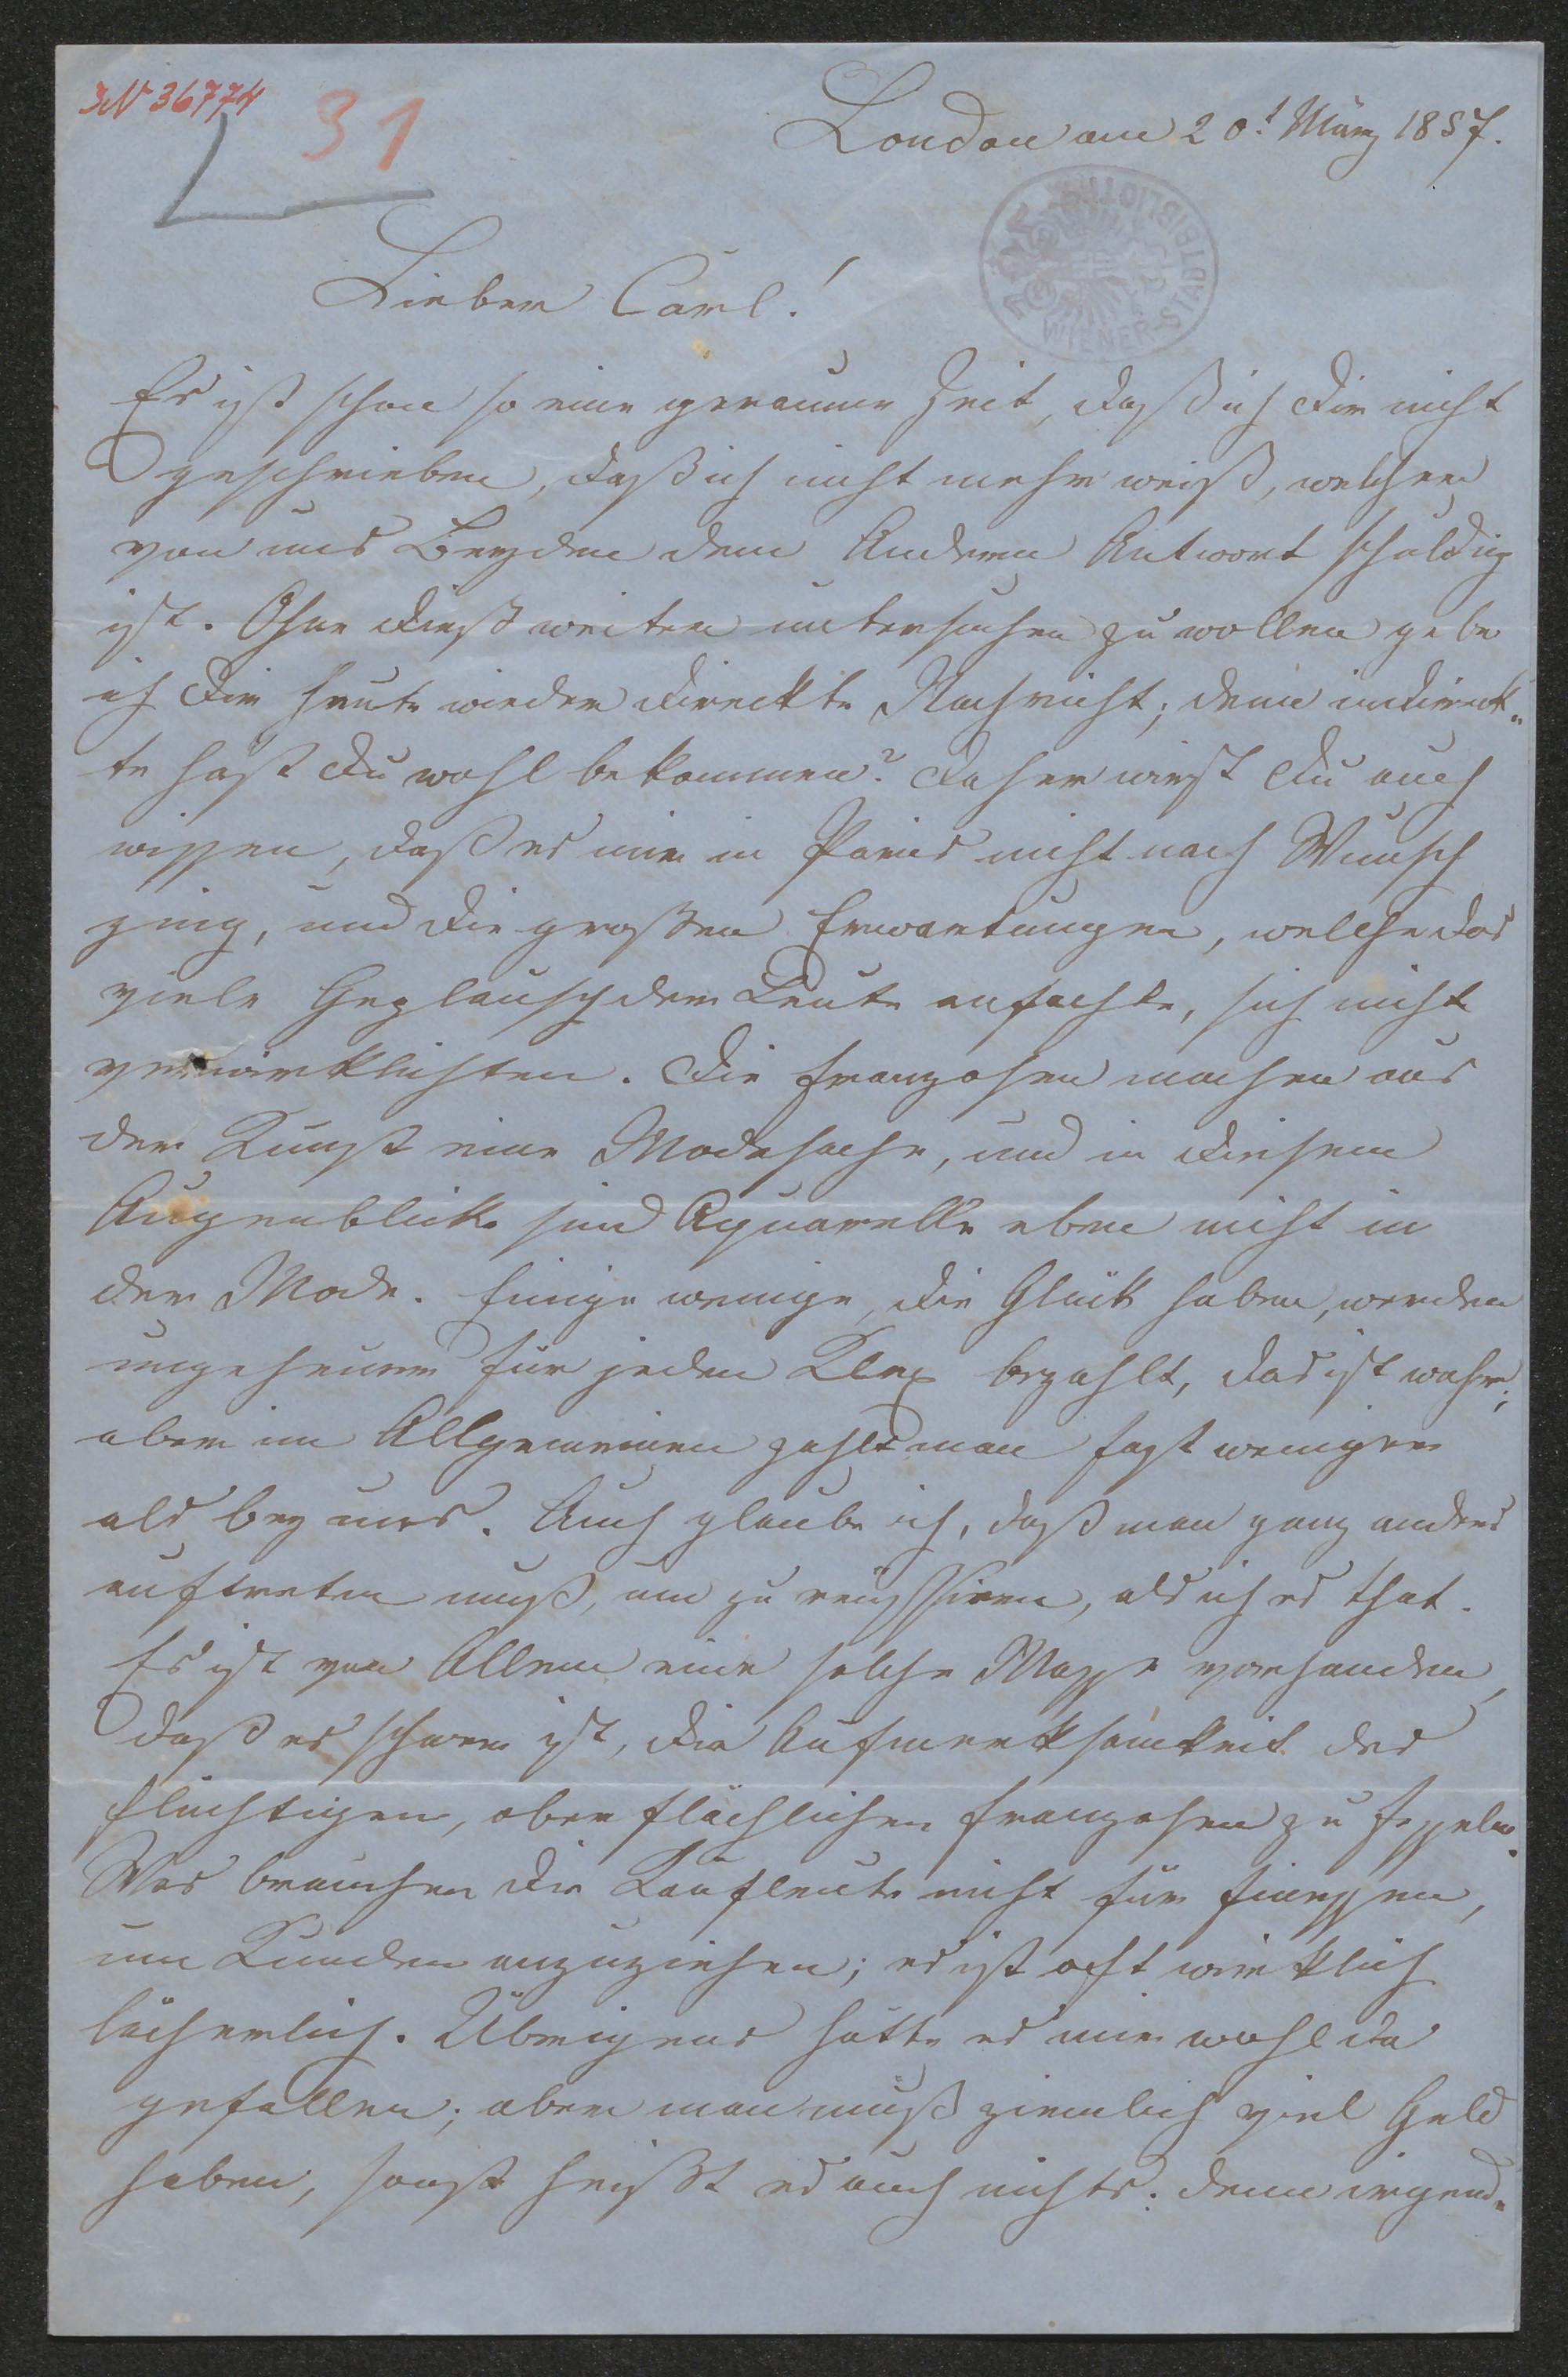 IN 36774
31
London am 20t März 1857.
WIENER-STADTBIBLIOTHEK
Lieber Carl!
Es ist schon so eine geraume Zeit, daß ich Dir nicht
geschrieben, daß ich nicht mehr weiß, welcher
von uns Beyden dem Andern Antwort schuldig
ist. Ohne dieß weiter untersuchen zu wollen gebe
ich Dir heute wieder direckte Nachricht; denn indireck„
te hast Du wohl bekommen? Daher wirst Du auch
wissen, daß es mir in Paris nicht nach Wunsch
ging, und die großen Erwartungen, welche das
viele Geplausch der Leute anfachte, sich nicht
verwirklichten. Die Franzosen machen aus
der Kunst eine Modesache, und in diesem
Augenblicke sind Aquarelle eben nicht in
der Mode. Einige wenige, die Glück haben, werden
ungeheuer für jeden Klex bezahlt, das ist wahr;
aber im Allgemeinen zahlt man fast weniger
als bey uns. Auch glaube ich, daß man ganz anders
auftreten muß, um zu reüssiren, als ich es that.
Es ist von Allem eine solche Masse vorhanden,
daß es schwer ist, die Aufmerksamkeit der
flüchtigen, oberflächlichen Franzosen zu fesseln.
Was brauchen die Kaufleute nicht für Finessen,
um Kunden anzuziehen; es ist oft wirklich
lächerlich. Übrigens hätte es mir wohl da
gefallen; aber man muß ziemlich viel Geld
haben, sonst heißt es auch nichts: denn irgend„